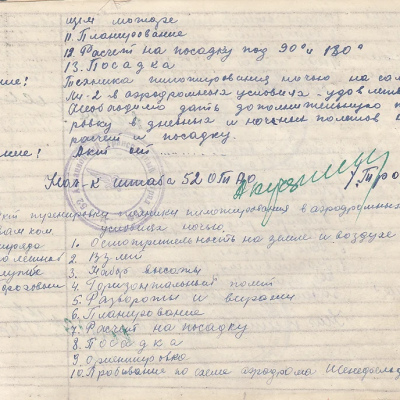 щем пожаре
11. Планирование
12. Расчет на посадку под 90° и 180°
13. Посадка
ние! Техника пилотирования ночью на сам
По-2 в аэродромных условиях - удовлетв
Необходимо дать дополнительную т
ровку в дневных и ночных полетов
расчет и посадку.
ние! Акт от
Нач-к штаба 52 ОТП ВО
Акт тренировки техники пилотирования в аэродромных
условиях ночью.
1. Осмотрительность на земле и воздухе
2. Взлет
3. Набор высоты
4. Горизонтальный полет
5. Развороты и виражи
6. Планирование
7. Расчет на посадку
8. Посадка
9. Ориентировка
10. Пробивание по схеме аэродрома